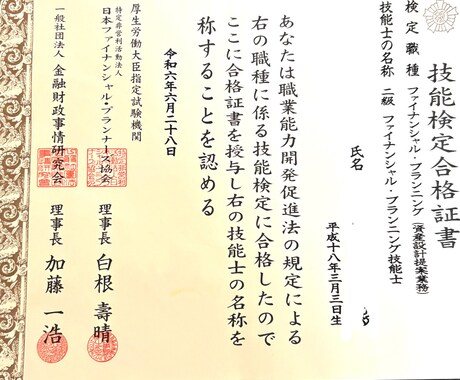 技能検定合格証書
検定職種 ファイナンシャル・プランニング(資産設計提案業務)
技能士の名称 二級 ファイナンシャル・プランニング技能士
氏名
平成十八年三月三日生
あなたは職業能力開発促進法の規定による
右の職種に係る技能検定に合格したので
ここに合格証書を授与し右の技能士の名称を
称することを認める
令和六年六月二十八日
厚生労働大臣指定試験機関
特定非営利活動法人
日本ファイナンシャル・プランナーズ協会 理事長 白根壽晴
一般社団法人 金融財政事情研究会 理事長 加藤一浩